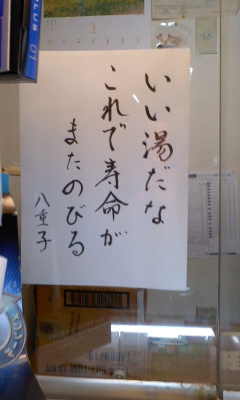 いい湯だな
これで寿命が
またのびる
八重子